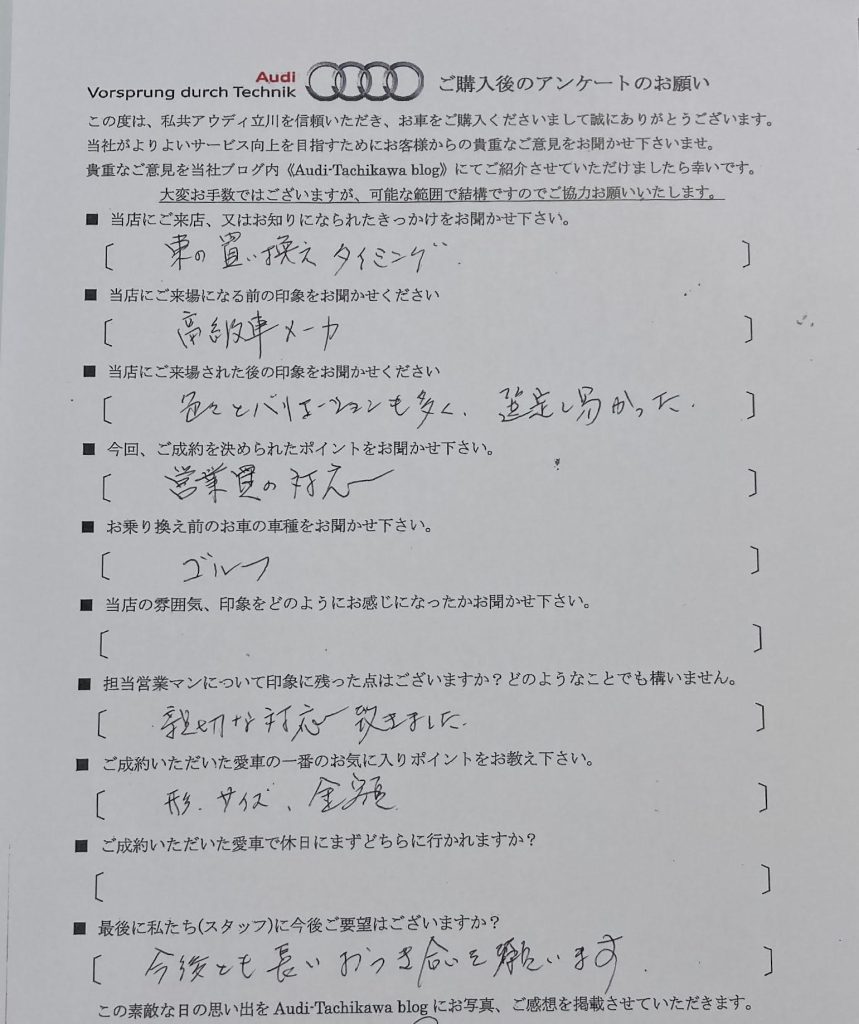 Audi
Vorsprung durch Technik
ご購入後のアンケートのお願い
この度は、私共アウディ立川を信頼いただき、お車をご購入くださいまして誠にありがとうございます。
当社がよりよいサービス向上を目指すためにお客様からの貴重なご意見をお聞かせ下さいませ。
貴重なご意見を当社ブログ内《Audi-Tachikawa blog》にてご紹介させていただけましたら幸いです。
大変お手数ではございますが、可能な範囲で結構ですのでご協力お願いいたします。
■ 当店にご来店、又はお知りになられたきっかけをお聞かせ下さい。
[ 車の買い換えタイミング. ]
■ 当店にご来場になる前の印象をお聞かせください
[ 高級車メーカ ]
■ 当店にご来場された後の印象をお聞かせください
[ 色々とバリエーションも多く、選定し易かった. ]
■ 今回、ご成約を決められたポイントをお聞かせ下さい。
[ 営業員の対応 ]
■ お乗り換え前のお車の車種をお聞かせ下さい。
[ ゴルフ ]
■ 当店の雰囲気、印象をどのようにお感じになったかお聞かせ下さい。
[ ]
■ 担当営業マンについて印象に残った点はございますか？どのようなことでも構いません。
[ 親切な対応致きました. ]
■ ご成約いただいた愛車の一番のお気に入りポイントをお教え下さい。
[ 形、サイズ、金額 ]
■ ご成約いただいた愛車で休日にまずどちらに行かれますか？
[ ]
■ 最後に私たち(スタッフ)に今後ご要望はございますか？
[ 今後とも長いおつき合いを願います. ]
この素敵な日の思い出を Audi-Tachikawa blog にお写真、ご感想を掲載させていただきます。